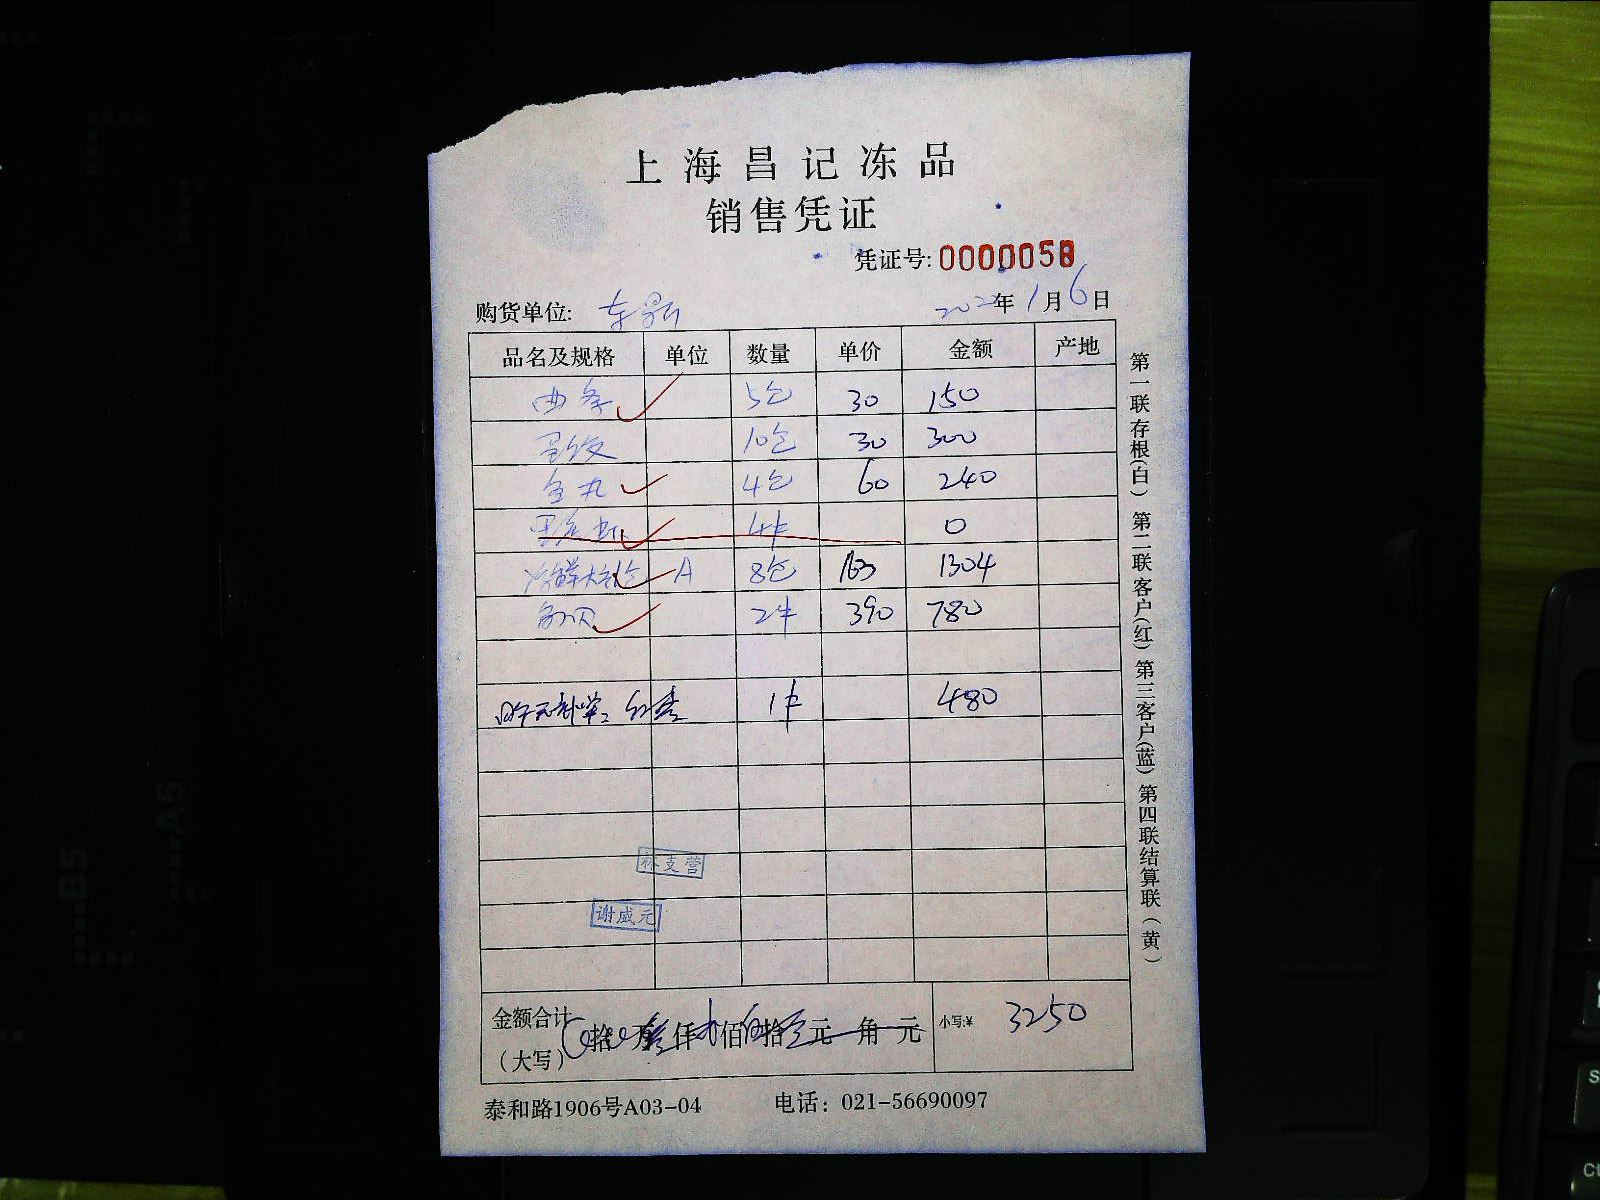 上海昌记冻品
销售凭证
凭证号: 0000058
购货单位: 2022年1月6日
品名及规格 单位 数量 单价 金额 产地
曲条 5包 30 150
蛋饺 10包 30 300
鱼丸 4包 60 240
4件 0
冰鲜大 A 8包 163 1304
2件 390 780
1件 480
林支营
谢咸元
金额合计 拾 万 仟 佰 拾 元 角 元 小写:¥ 3250
（大写）
泰和路1906号A03-04 电话：021-56690097
第一联存根(白) 第二联客户(红) 第三客户(蓝) 第四联结算联(黄)
B5
A5